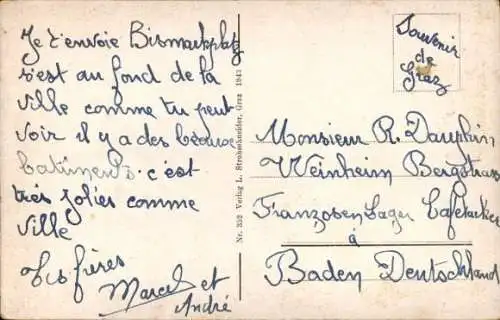 Je t'envoie Bismarkplatz
s'est au fond de la
ville comme tu peut
voir il y a des beaux
batiments. c'est
très jolies comme
ville
Tes frères
Marcel et
André
Nr. 352 Verlag L. Strohschneider, Graz 1941
Souvenir
de
Graz
Monsieur R. Dauphin
Weinheim Bergstras
Franzosen Lager
à
Baden Deutschland